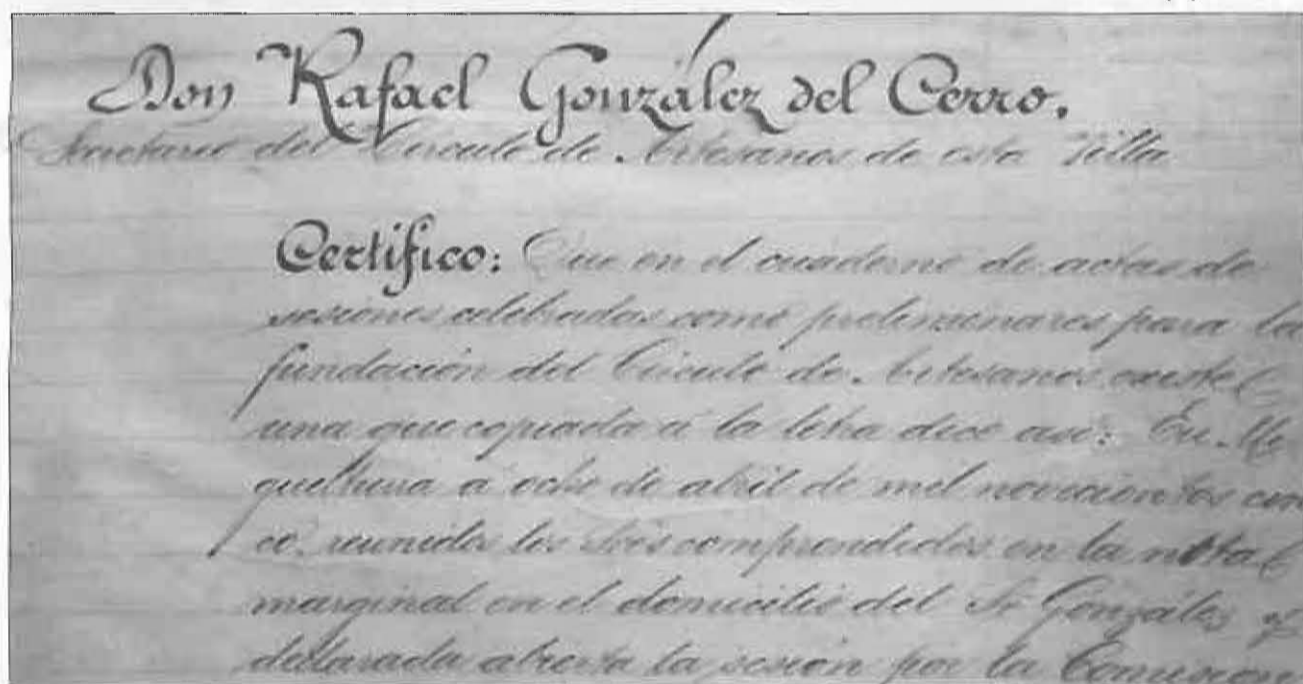 Don Rafael González del Cerro.
Secretario del Circulo de Artesanos de esta Villa
Certifico: Que en el cuaderno de actas de
sesiones celebradas como preliminares para la
fundación del Circulo de Artesanos existe
una que copiada á la letra dice asi: En Me
quellina á ocho de abril de mil novecientos cin
co. reunidos los Sres comprendidos en la nota
marginal en el domicilio del Sr González y
declarada abierta la sesión por la Comision